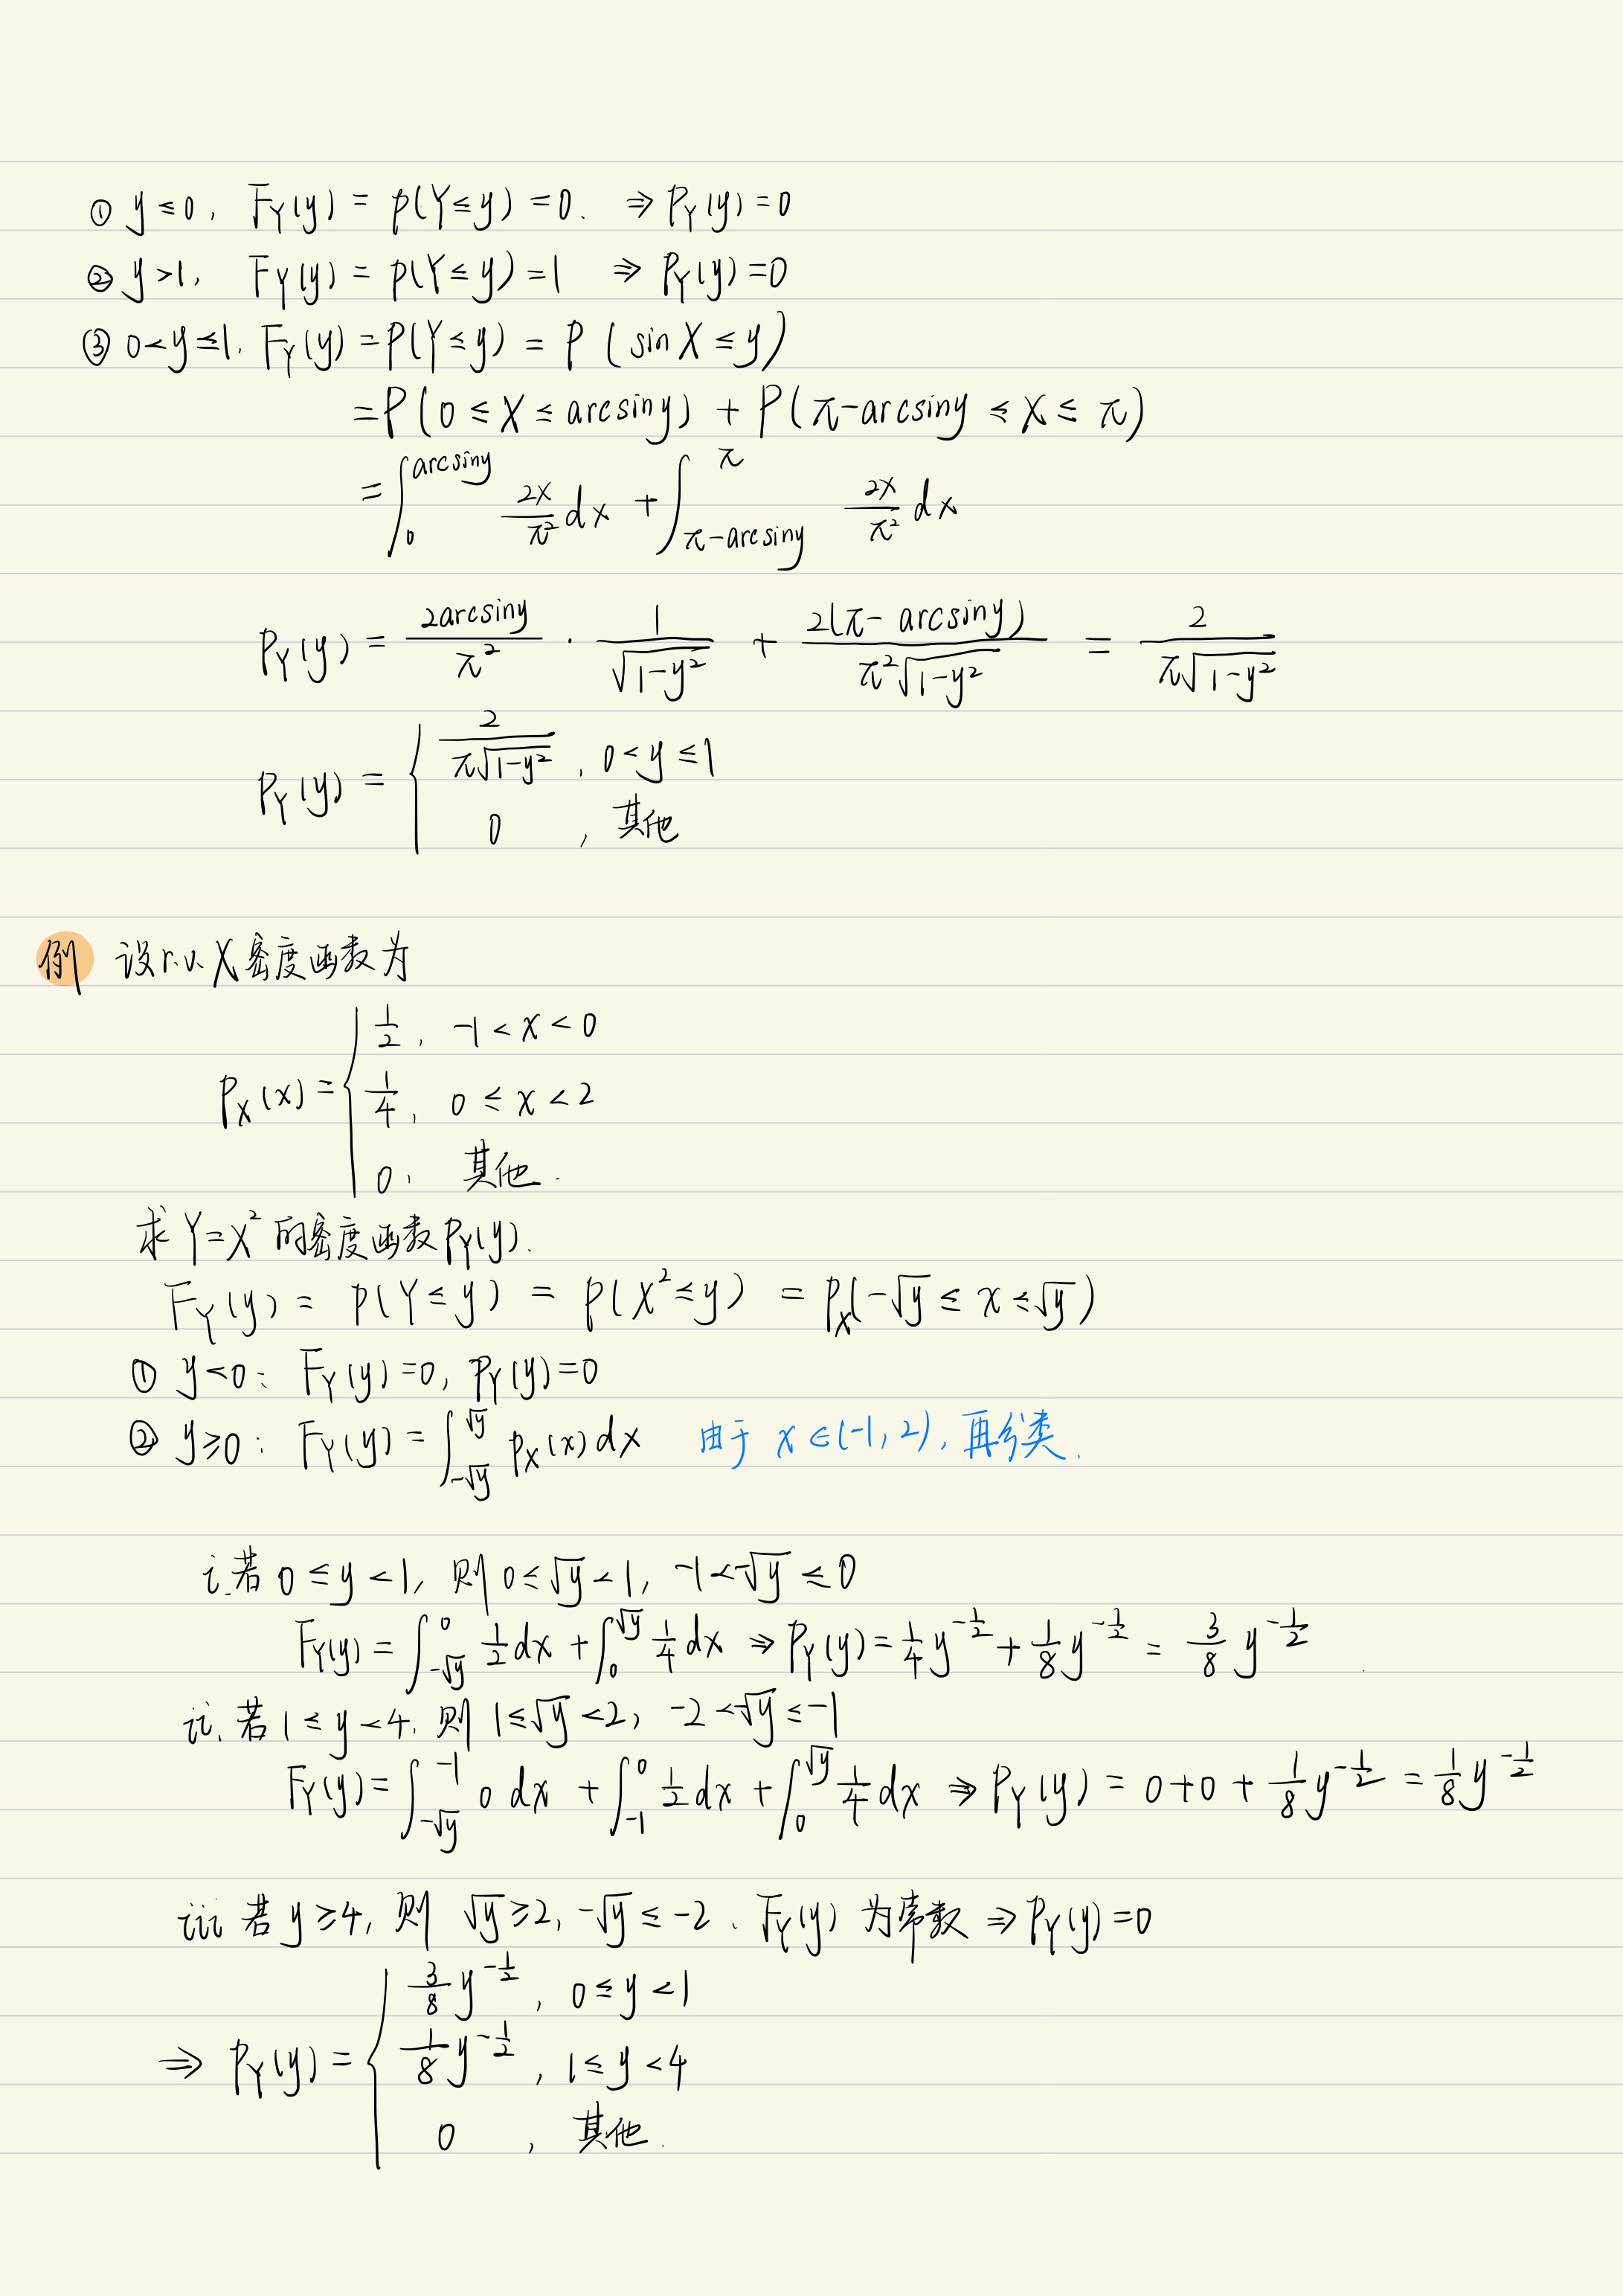 ① y≤0, F_Y(y) = p(Y≤y) = 0. ⇒ P_Y(y)=0
② y>1, F_Y(y) = p(Y≤y) = 1 ⇒ P_Y(y)=0
③ 0<y≤1, F_Y(y) = P(Y≤y) = P(sinX≤y)
= P(0≤X≤arcsiny) + P(π-arcsiny≤X≤π)
= ∫_0^{arcsiny} \frac{2x}{π^2} dx + ∫_{π-arcsiny}^{π} \frac{2x}{π^2} dx
P_Y(y) = \frac{2arcsiny}{π^2} · \frac{1}{\sqrt{1-y^2}} + \frac{2(π-arcsiny)}{π^2\sqrt{1-y^2}} = \frac{2}{π\sqrt{1-y^2}}
P_Y(y) = { \frac{2}{π\sqrt{1-y^2}}, 0<y≤1
0, 其他
例 设r.v.X密度函数为
P_X(x) = { \frac{1}{2}, -1<x<0
\frac{1}{4}, 0≤x<2
0, 其他.
求Y=X^2的密度函数P_Y(y).
F_Y(y) = p(Y≤y) = p(X^2≤y) = P_X(-\sqrt{y}≤x≤\sqrt{y})
① y<0: F_Y(y)=0, P_Y(y)=0
② y≥0: F_Y(y) = ∫_{-\sqrt{y}}^{\sqrt{y}} p_X(x)dx 由于 x∈(-1,2), 再分类.
i. 若 0≤y<1, 则 0≤\sqrt{y}<1, -1<-\sqrt{y}≤0
F_Y(y) = ∫_{-\sqrt{y}}^0 \frac{1}{2}dx + ∫_0^{\sqrt{y}} \frac{1}{4}dx ⇒ P_Y(y) = \frac{1}{4}y^{-\frac{1}{2}} + \frac{1}{8}y^{-\frac{1}{2}} = \frac{3}{8}y^{-\frac{1}{2}}
ii. 若 1≤y<4, 则 1≤\sqrt{y}<2, -2<-\sqrt{y}≤-1
F_Y(y) = ∫_{-\sqrt{y}}^{-1} 0 dx + ∫_{-1}^0 \frac{1}{2}dx + ∫_0^{\sqrt{y}} \frac{1}{4}dx ⇒ P_Y(y) = 0+0+\frac{1}{8}y^{-\frac{1}{2}} = \frac{1}{8}y^{-\frac{1}{2}}
iii 若 y≥4, 则 \sqrt{y}≥2, -\sqrt{y}≤-2、F_Y(y) 为常数 ⇒ P_Y(y)=0
⇒ P_Y(y) = { \frac{3}{8}y^{-\frac{1}{2}}, 0≤y<1
\frac{1}{8}y^{-\frac{1}{2}}, 1≤y<4
0, 其他.